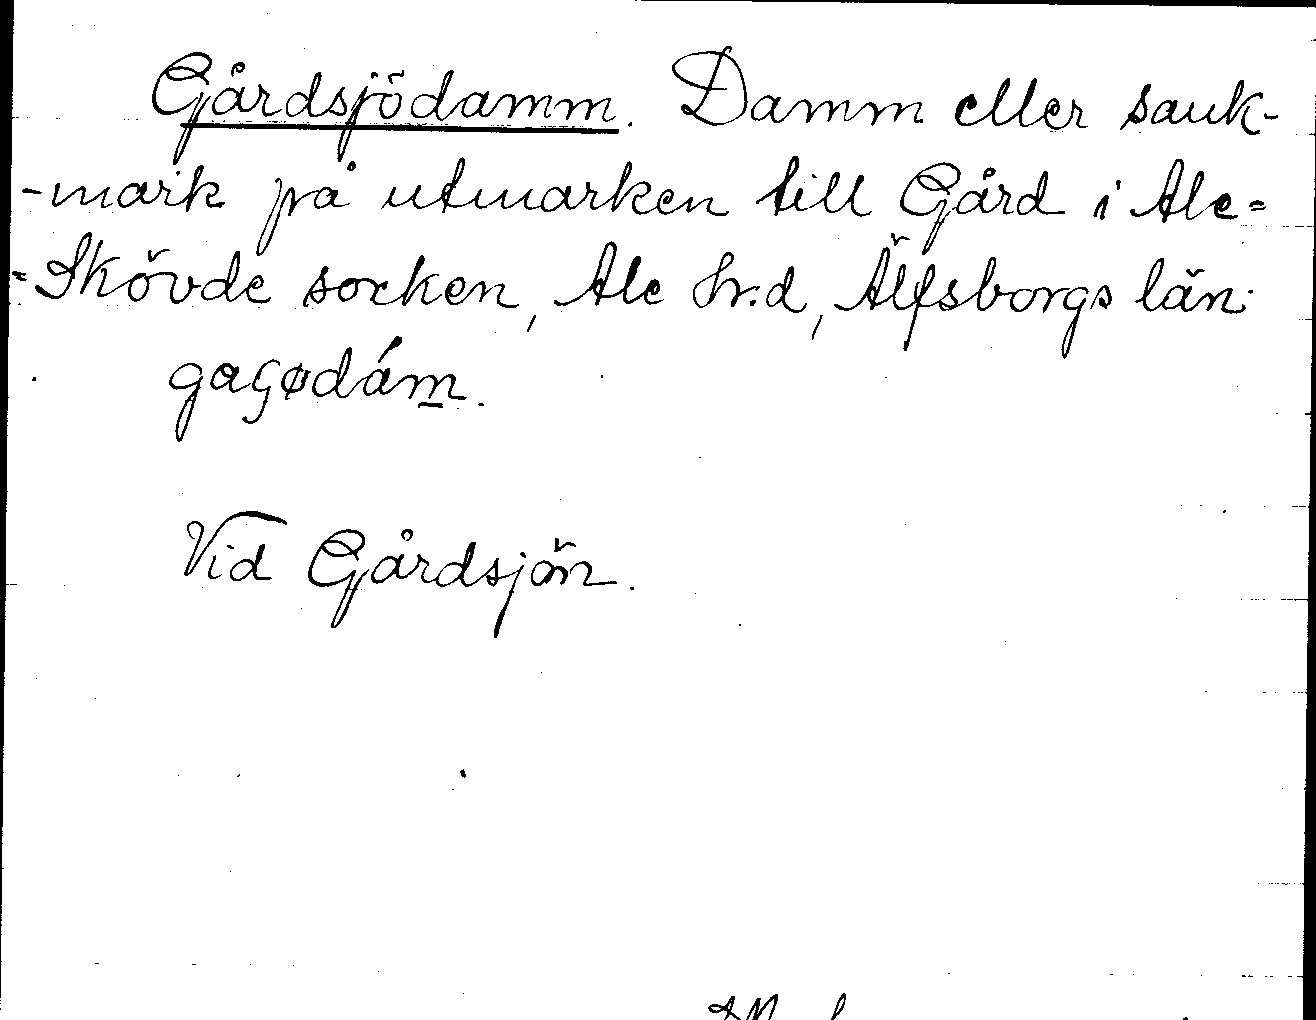 Gårdsjödamm. Damm eller sank-
-mark på utmarken till Gård i Ale-
-Skövde socken, Ale hrd, Älfsborgs län.
gaɕødám.
Vid Gårdsjön.